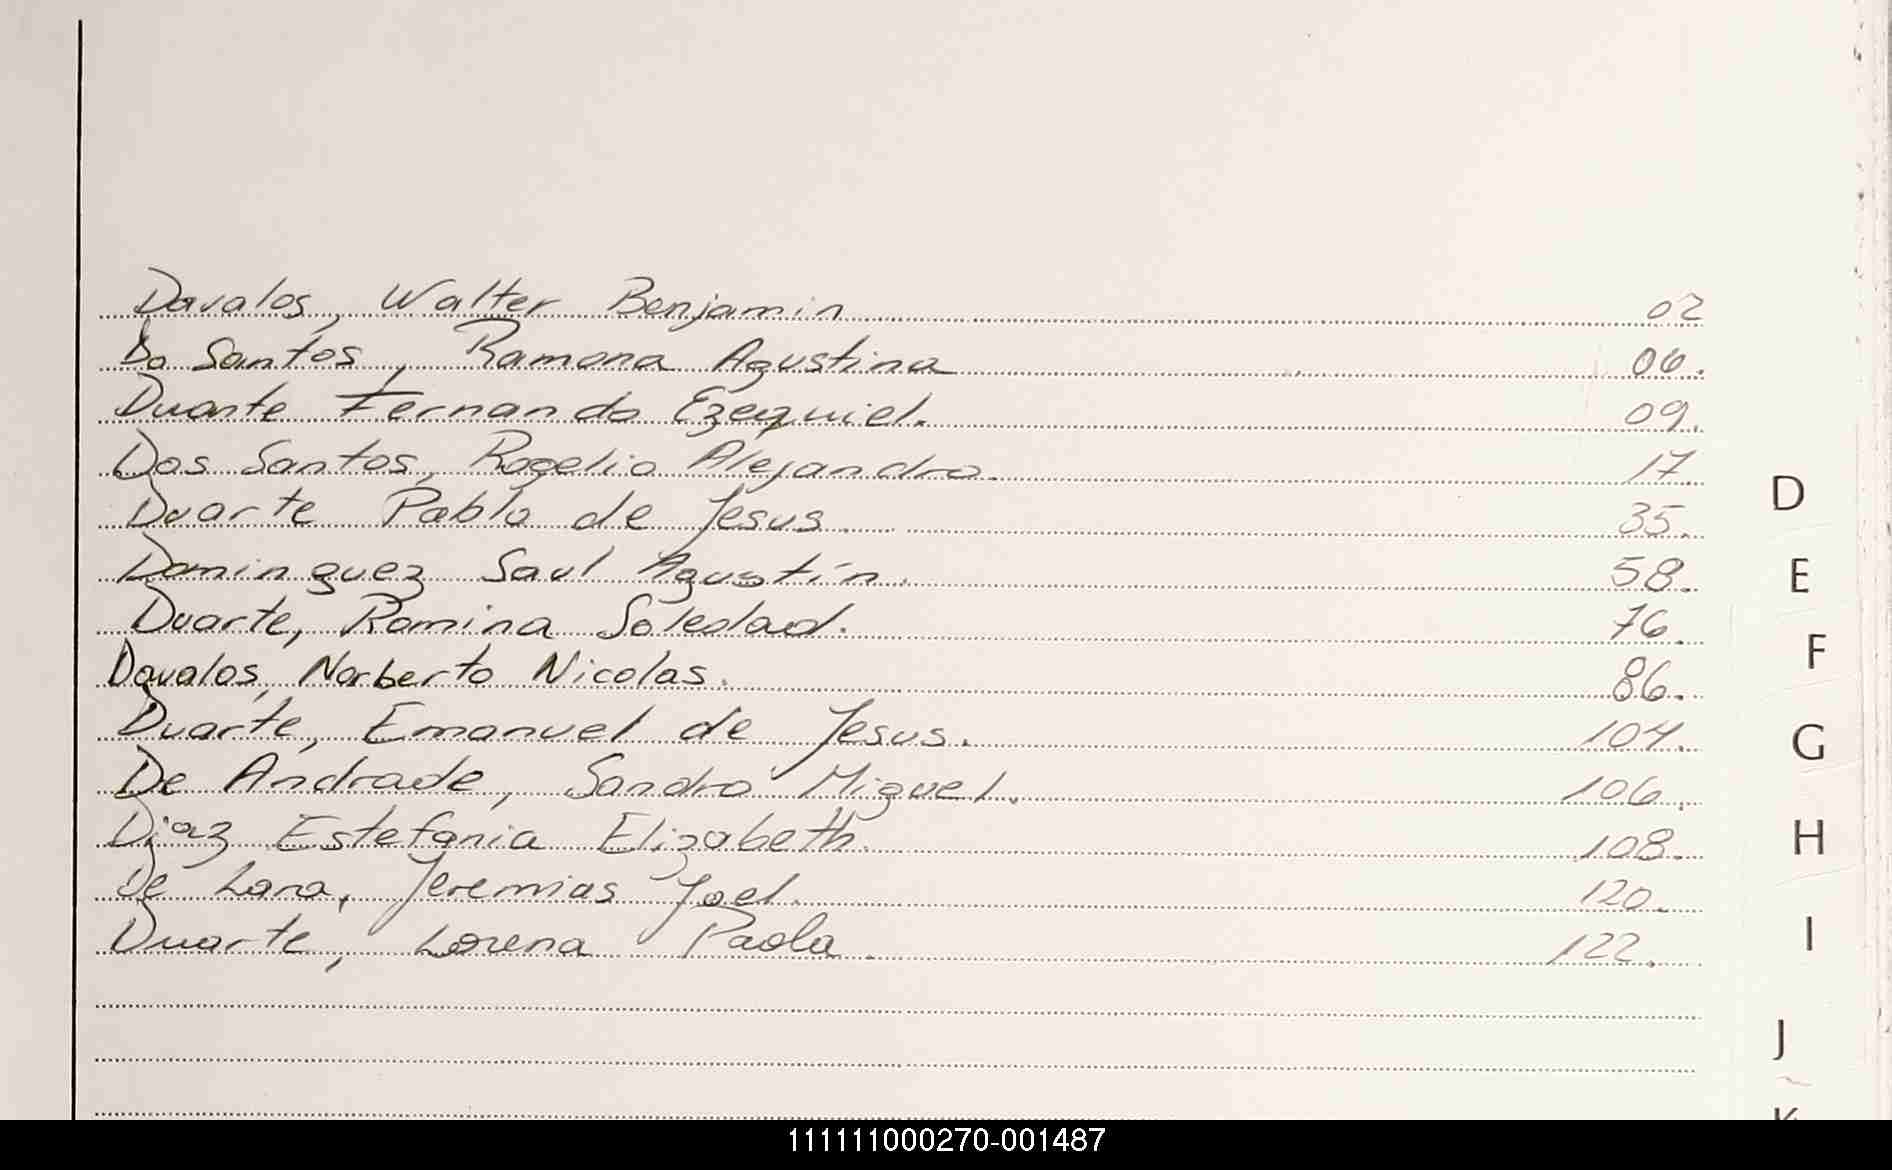 Davalos, Walter Benjamin 02
Do Santos, Ramona Agustina 06.
Duarte Fernando Ezequiel. 09.
Dos Santos, Rogelio Alejandro. 17.
Duarte Pablo de Jesus 35.
Dominguez Saul Agustín. 58.
Duarte, Romina Soledad. 76.
Davalos, Norberto Nicolas. 86.
Duarte, Emanuel de Jesus. 104.
De Andrade, Sandro Miguel. 106.
Diaz Estefania Elizabeth. 108.
De Lara, Jeremias Joel. 120.
Duarte, Lorena Paola. 122.
D
E
F
G
H
I
J
K
111111000270-001487